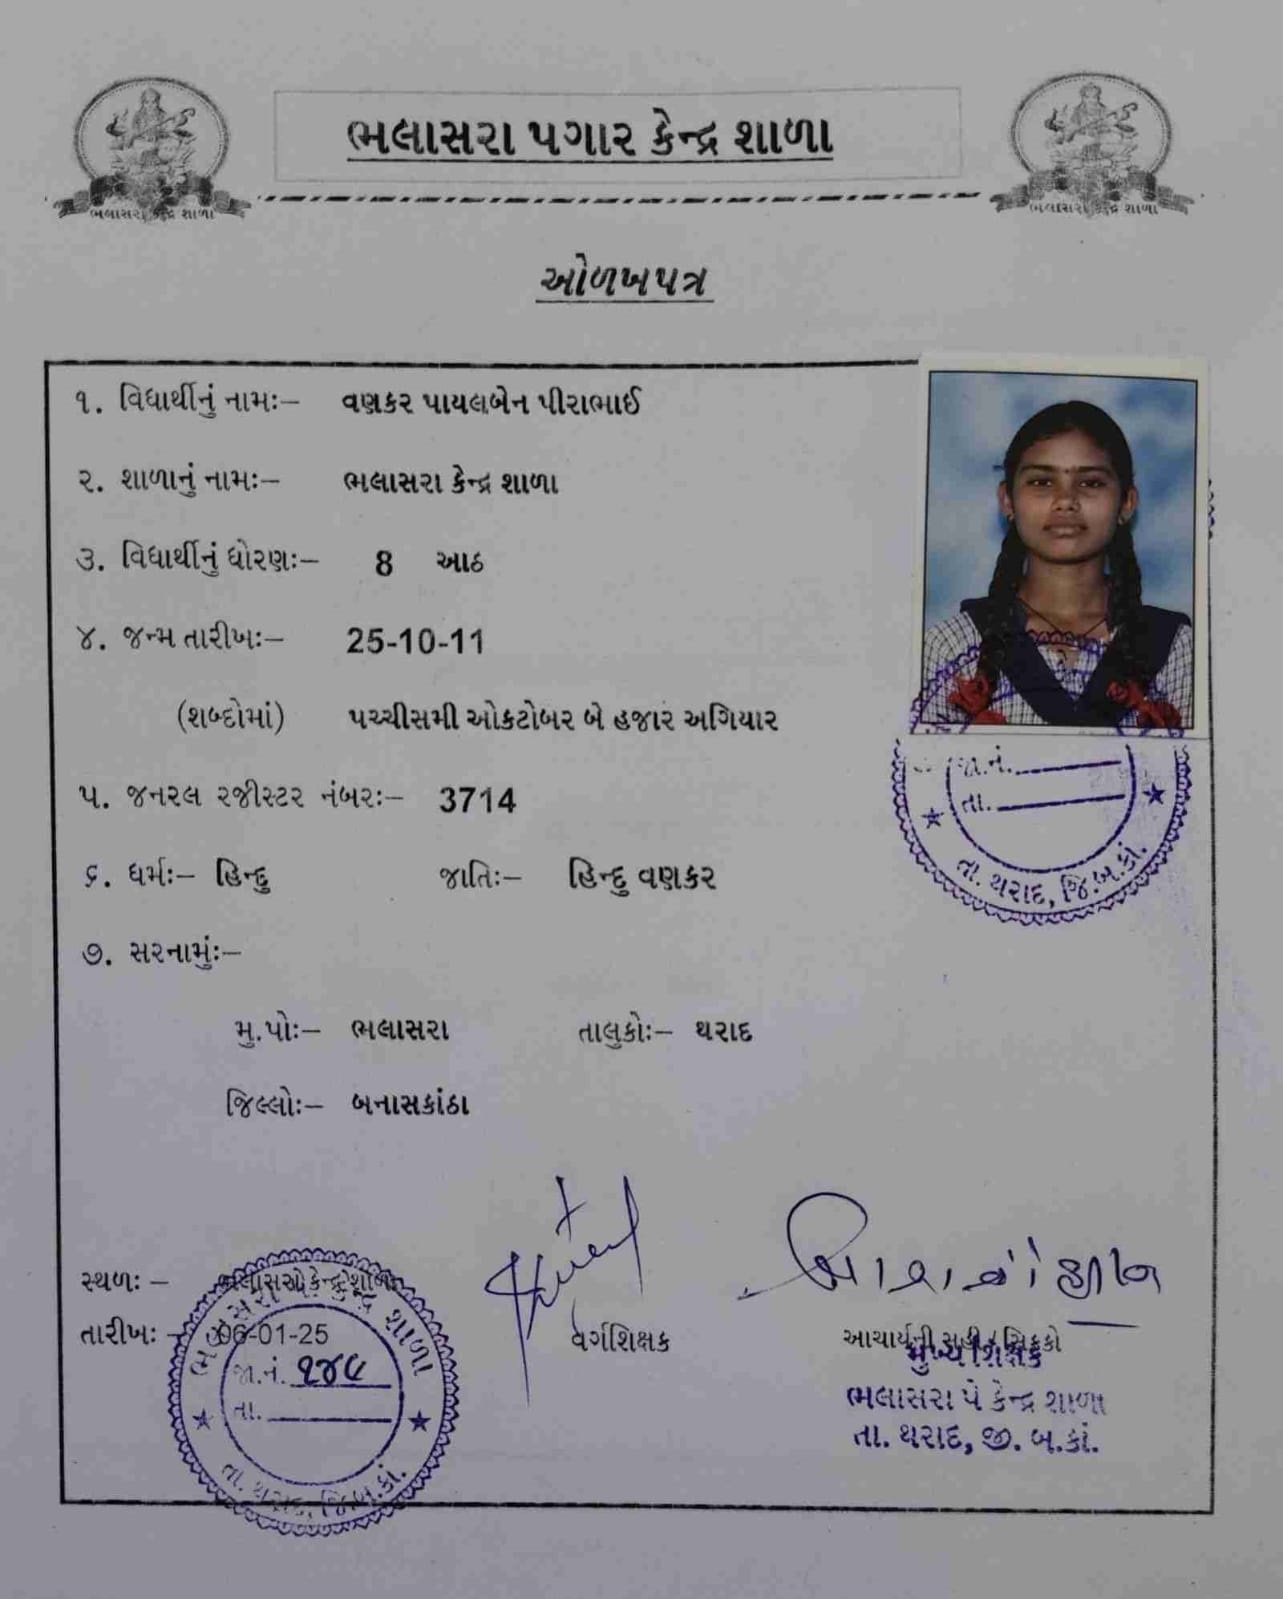 ભલાસરા પગાર કેન્દ્ર શાળા
ભલાસરા કેન્દ્ર શાળા
ભલાસરા કેન્દ્ર શાળા
ઓળખપત્ર
૧. વિધાર્થીનું નામઃ– વણકર પાયલબેન પીરાભાઈ
૨. શાળાનું નામઃ– ભલાસરા કેન્દ્ર શાળા
૩. વિધાર્થીનું ધોરણઃ– 8 આઠ
૪. જન્મ તારીખઃ– 25-10-11
(શબ્દોમાં) પચ્ચીસમી ઓકટોબર બે હજાર અગિયાર
૫. જનરલ રજીસ્ટર નંબરઃ– 3714
જા.નં.
તા.
તા. થરાદ, જિ.બ.કાં.
૬. ધર્મઃ– હિન્દુ જાતિઃ– હિન્દુ વણકર
૭. સરનામુંઃ–
મુ.પોઃ– ભલાસરા તાલુકોઃ– થરાદ
જિલ્લોઃ– બનાસકાંઠા
સ્થળઃ – ભલાસરા કેન્દ્ર શાળા
તારીખઃ – 06-01-25
ભલાસરા પે કેન્દ્ર શાળા
જા.નં. ૨૪૯
તા.
તા. થરાદ, જિ.બ.કાં.
વર્ગશિક્ષક
આચાર્યની સહી / સિક્કો
મુખ્ય શિક્ષક
ભલાસરા પે કેન્દ્ર શાળા
તા. થરાદ, જી. બ.કાં.